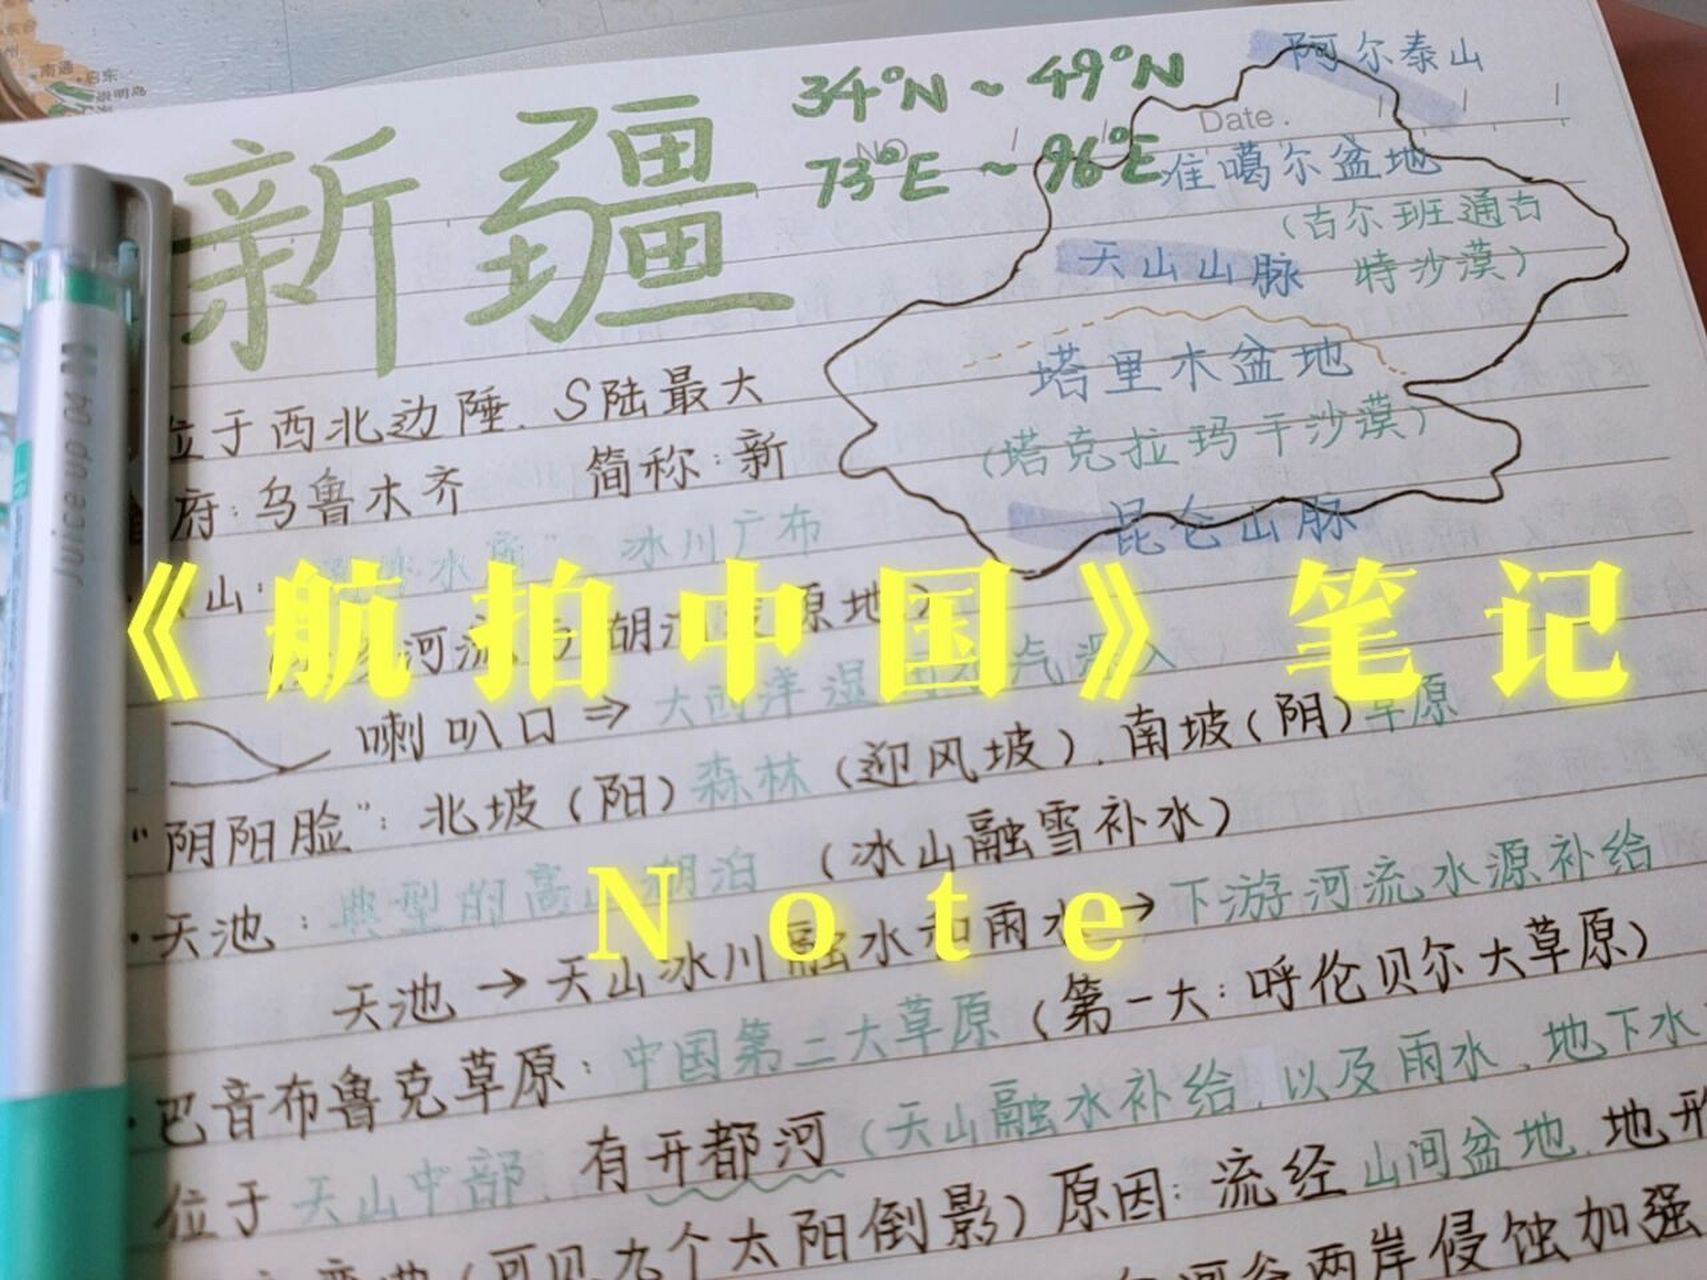 南通
启东
崇明岛
新疆
34°N ~ 49°N
73°E ~ 96°E
NO
Date.
阿尔泰山
准噶尔盆地
(古尔班通古
特沙漠)
天山山脉
塔里木盆地
(塔克拉玛干沙漠)
昆仑山脉
位于西北边陲. S陆最大
府:乌鲁木齐 简称:新
山: 冰川广布
《航拍中国》笔记
喇叭口⇒大西洋湿
"阴阳脸":北坡(阳)森林(迎风坡).南坡(阴)草原
·天池:典型的高山湖泊 (冰山融雪补水)
Note
天池→天山冰川融水和雨水→下游河流水源补给
·巴音布鲁克草原:中国第二大草原(第一大:呼伦贝尔大草原)
位于天山中部.有开都河(天山融水补给.以及雨水.地下水
(可见九个太阳倒影)原因:流经山间盆地.地形
河谷两岸侵蚀加强
Juice up 04